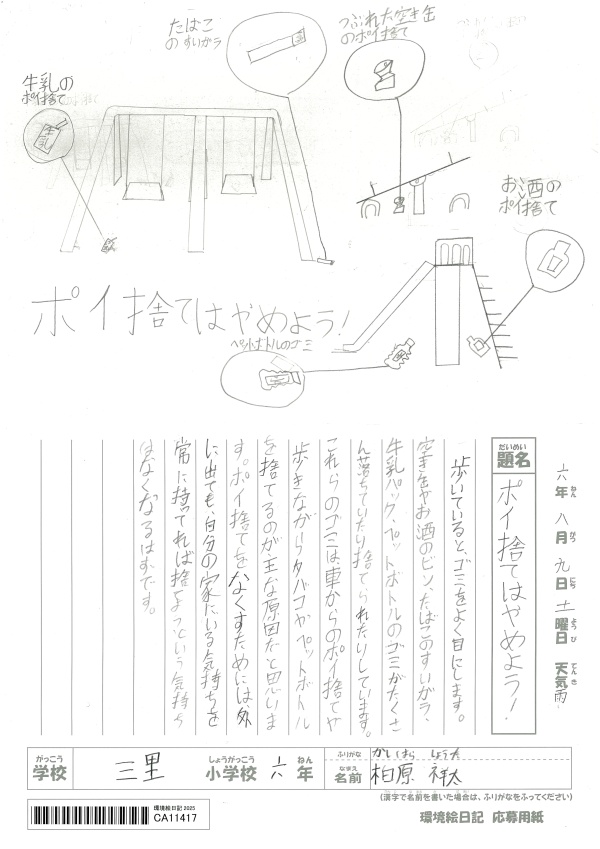 たばこ
のすいがら
つぶれた空き缶
のポイ捨て
牛乳の
ポイ捨て
牛乳
お酒の
ポイ捨て
ポイ捨てはやめよう!
ペットボトルのゴミ
六年八月九日土曜日 天気雨
ねん がつ にち ようび てんき
だいめい
題名
ポイ捨てはやめよう!
歩いていると、ゴミをよく目にします。
空きカンやお酒のビン、たばこのすいガラ、
牛乳パック、ペットボトルのゴミがたくさ
ん落ちていたり捨てられたりしています。
これらのゴミは、車からのポイ捨てや
歩きながらタバコやペットボトル
を捨てるのが主な原因だと思いま
す。ポイ捨てをなくすためには、外
に出ても、自分の家にいる気持ちを
常に持ってれば捨てようという気持ち
はなくなるはずです。
がっこう
学校
三里
しょうがっこう
小学校
六
ねん
年
ふりがな
かしはら しょうた
なまえ
名前
柏原 祥太
(漢字で名前を書いた場合は、ふりがなをふってください)
環境絵日記 2025
CA11417
環境絵日記 応募用紙